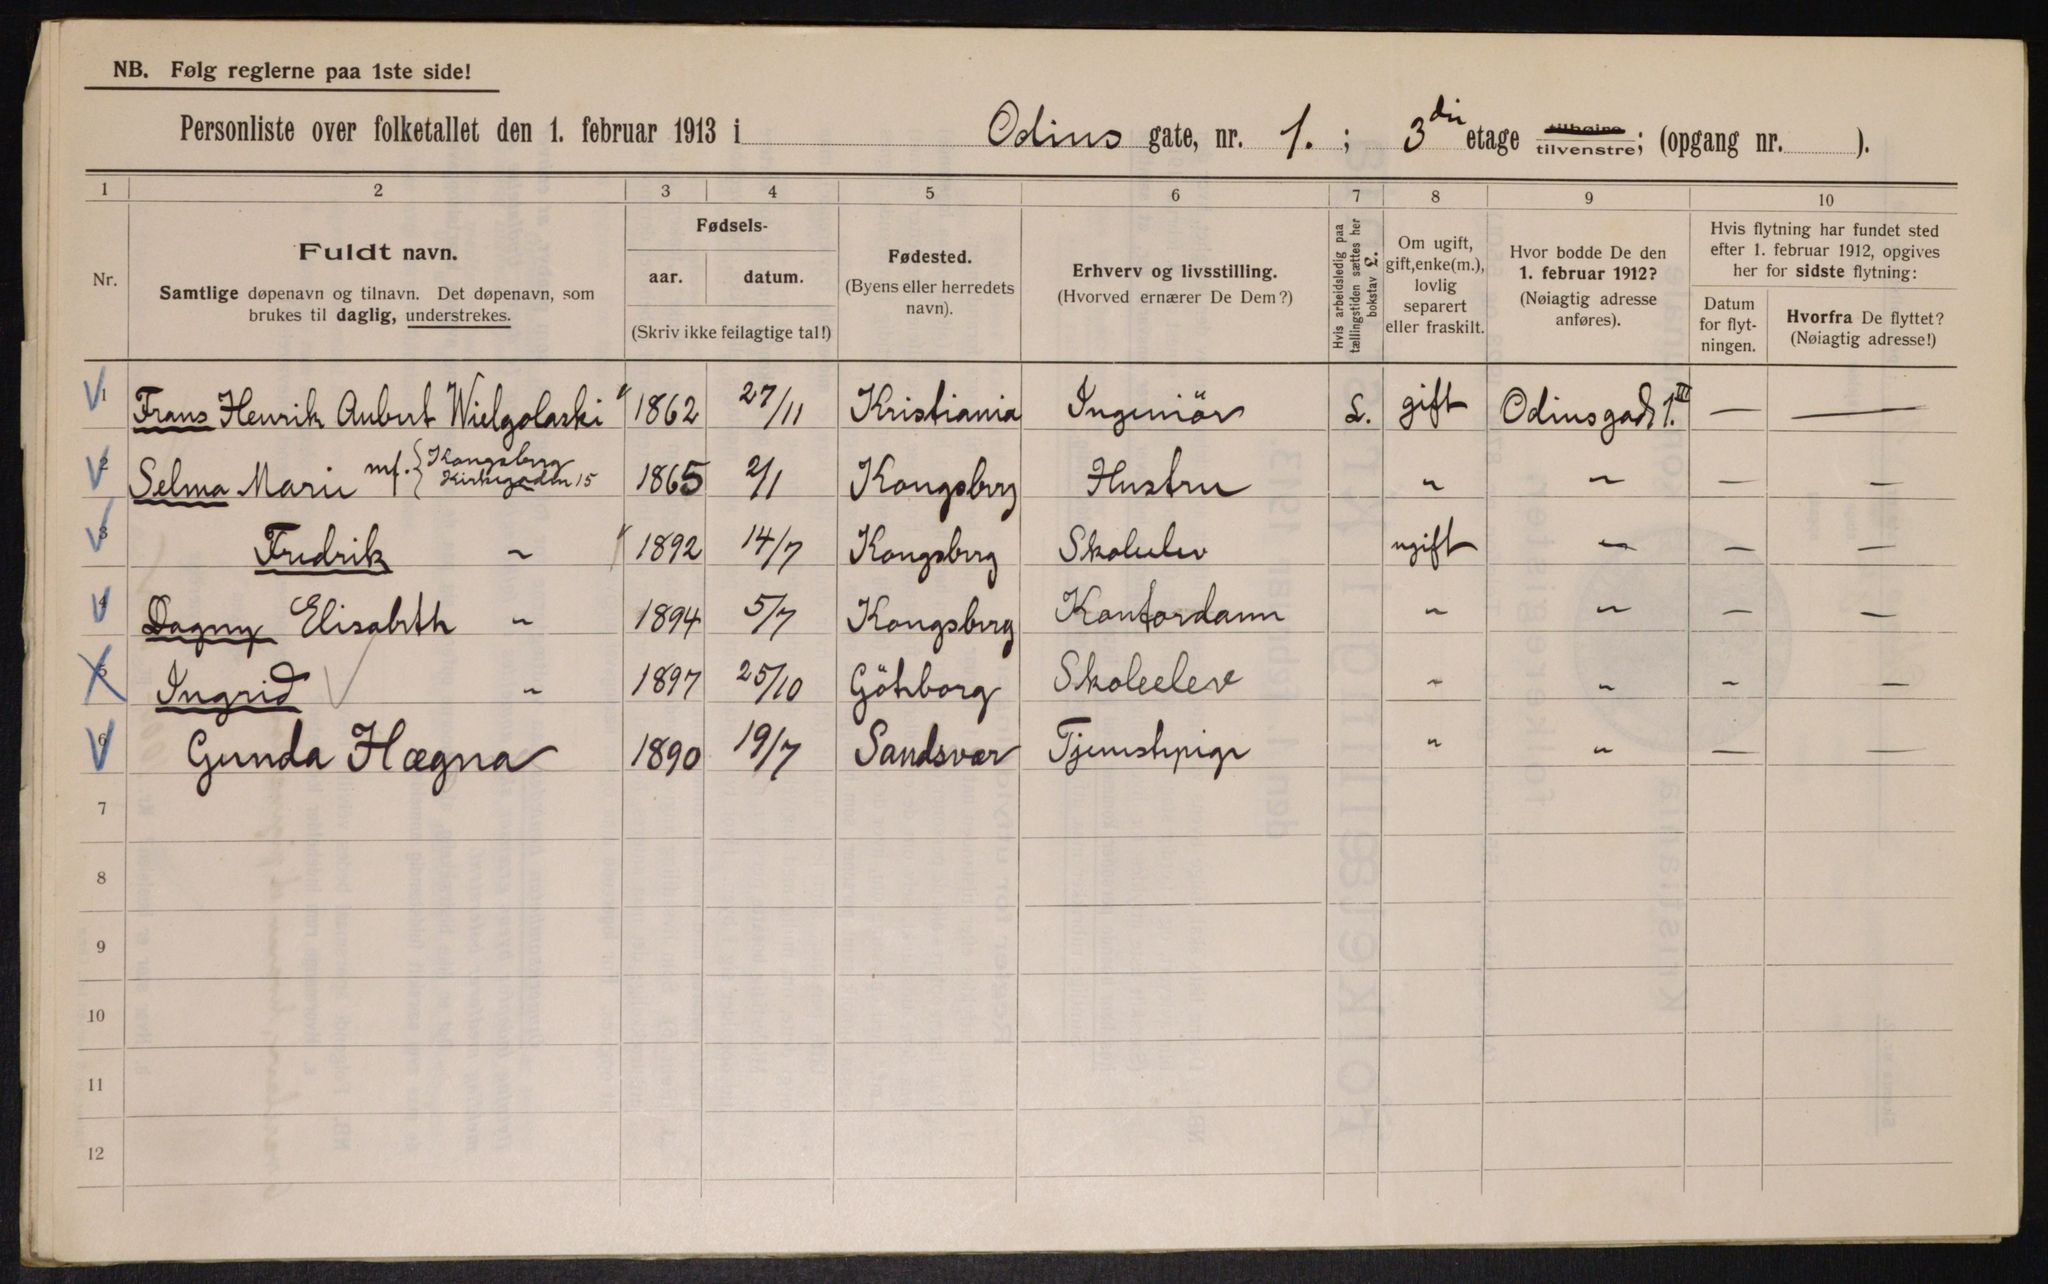 NB. Følg reglerne paa 1ste side!
Personliste over folketallet den 1. februar 1913 i Odins gate, nr. 1. ; 3die etage tilhøire tilvenstre; (opgang nr. ).
1 2 3 4 5 6 7 8 9 10
Nr.
Fuldt navn.
Samtlige døpenavn og tilnavn. Det døpenavn, som
brukes til daglig, understrekes.
Fødsels-
aar. datum.
(Skriv ikke feilagtige tal!)
Fødested.
(Byens eller herredets
navn).
Erhverv og livsstilling.
(Hvorved ernærer De Dem?)
Hvis arbeidsledig paa
tællingstiden sættes her
bokstav L.
Om ugift,
gift, enke(m.),
lovlig
separert
eller fraskilt.
Hvor bodde De den
1. februar 1912?
(Nøiagtig adresse
anføres).
Hvis flytning har fundet sted
efter 1. februar 1912, opgives
her for sidste flytning:
Datum
for flyt-
ningen.
Hvorfra De flyttet?
(Nøiagtig adresse!)
1 Frans Henrik Aubert Wielgolaski 1862 27/11 Kristiania Ingeniör L. gift Odinsgade 1.III — —
2 Selma Marie mf. { Kongsberg Kirkegaden 15 1865 2/1 Kongsberg Hustru " " — —
3 Fredrik " 1892 14/7 Kongsberg Skoleelev ugift " — —
4 Dagny Elisabeth " 1894 5/7 Kongsberg Kontordame " " — —
5 Ingrid " 1897 25/10 Göteborg Skoleelev " " — —
6 Gunda Hægna 1890 19/7 Sandsvær Tjenestepige " " — —
7
8
9
10
11
12